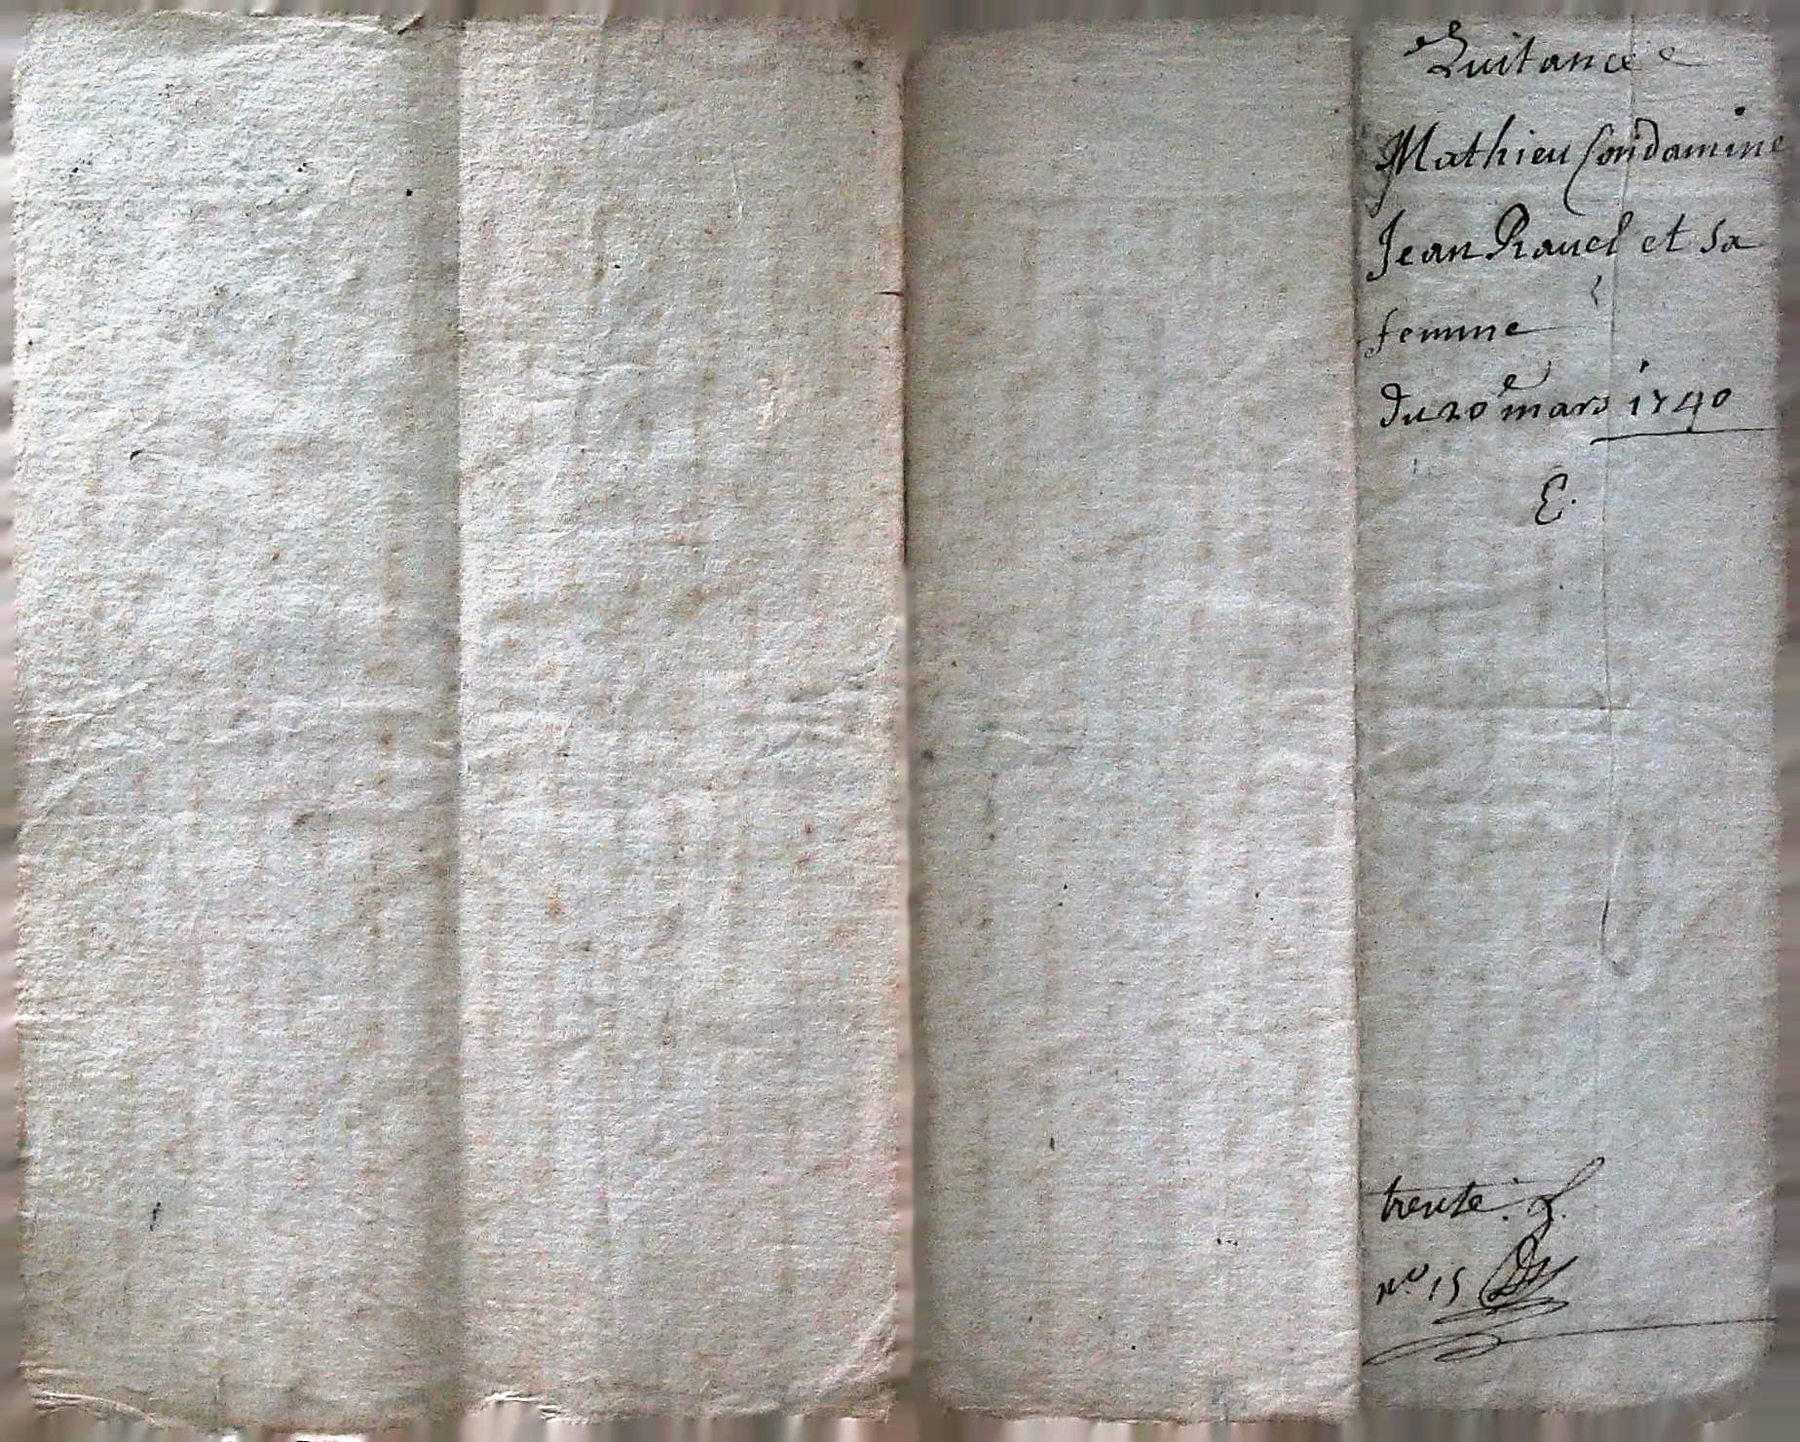 Quitance
Mathieu Condamine
Jean Rauel et sa
femme
du 20e mars 1740
E.
trente.
no. 15